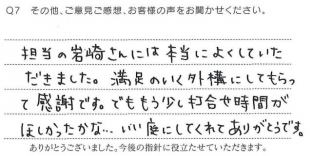 Q7 その他、ご意見ご感想、お客様の声をお聞かせください。
担当の岩崎さんには本当によくしていた
だきました。満足のいく外構にしてもらっ
て感謝です。でももう少し打合せ時間が
ほしかったかな… いい庭にしてくれてありがとうです。
ありがとうございました。今後の指針に役立たせていただきます。